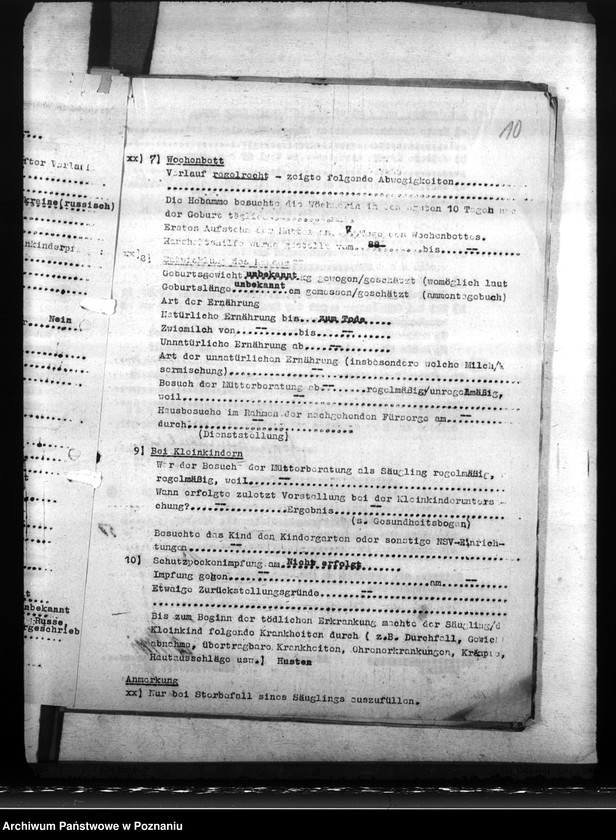 10
xx) 7) Wochenbett
Verlauf regelrecht - zeigte folgende Abwegigkeiten
Die Hebamme besuchte die Wöchnerin in den ersten 10 Tagen
der Geburt täglich
Erstes Aufstehn der Mutter am 7. Tage des Wochenbettes.
wurde gestellt vom -- bis --
8)
Geburtsgewicht unbekannt kg gewogen/geschätzt (womöglich laut
Geburtslänge unbekannt cm gemessen/geschätzt
Art der Ernährung
Natürliche Ernährung bis zum Tode
Zwiemilch von -- bis --
Unnatürliche Ernährung ab --
Art der unnatürlichen Ernährung (insbesondere welche Milch/
sermischung) --
Besuch der Mütterberatung ab -- regelmäßig/unregelmäßig,
weil --
Hausbesuche im Rahmen der nachgehenden Fürsorge am --
durch --
(Dienststellung)
9) Bei Kleinkindern
War der Besuch der Mütterberatung als Säugling regelmäßig,
regelmäßig, weil --
Wann erfolgte zuletzt Vorstellung bei der Kleinkinderunters -
chung? -- Ergebnis --
(s. Gesundheitsbogen)
Besuchte das Kind den Kindergarten oder sonstige NSV-Einrich-
tungen --
10) Schutzpockenimpfung am Nicht erfolgt
Impfung gegen -- am --
Etwaige Zurückstellungsgründe --
Bis zum Beginn der tödlichen Erkrankung machte der Säugling/d
Kleinkind folgende Krankheiten durch ( z.B. Durchfall,
abnahme, übertragbare Krankheiten, Ohrenerkrankungen, Krämpfe,
Hautausschläge usw.) Husten
Anmerkung
xx) Nur bei Sterbefall eines Säuglings auszufüllen.
(russisch)
Nein
Russe
Archiwum Państwowe w Poznaniu